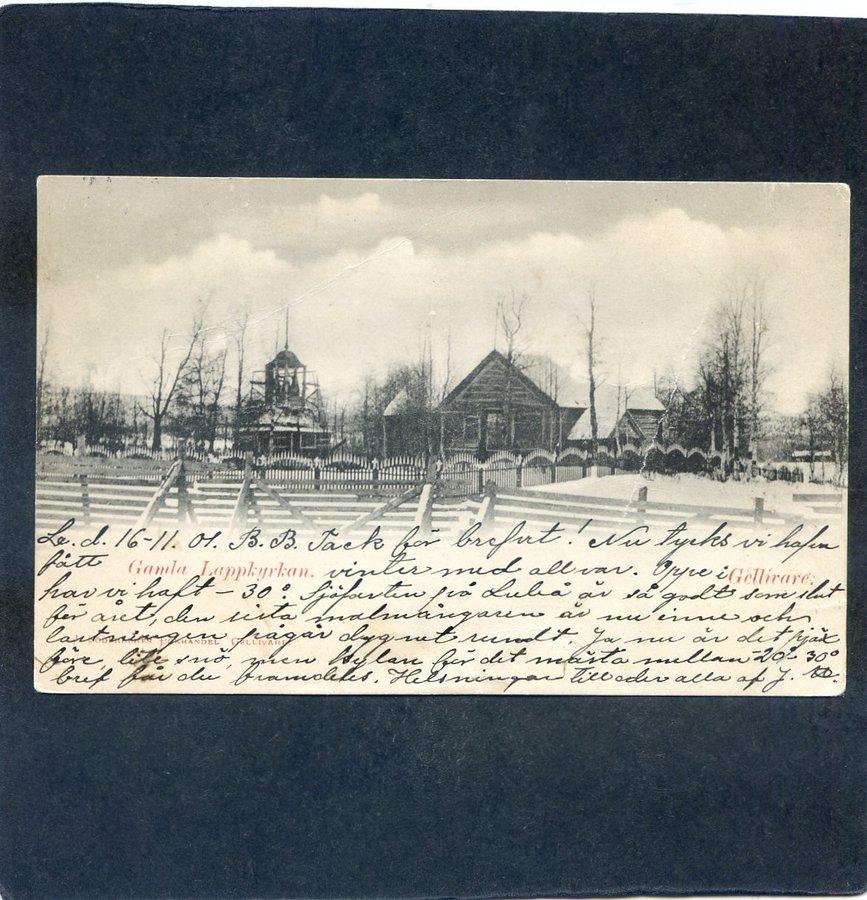 Le. d. 16-11. 01. B. B. Tack för brefvet! Nu tycks vi hafva
fått vinter med allvar. Oppe i
Gamla Lappkyrkan. Gellivare.
har vi haft - 30°. Sjöfarten på Luleå är så godt som slut
för året, den sista malmångaren är nu inne och
lastningen pågår dygnet rundt. Ja nu är det
BOKHANDEL GELLIVARE
före, lite snö, men kylan för det mästa mellan -20°-30°
bref får du framdeles. Helsningar till eder alla af J.